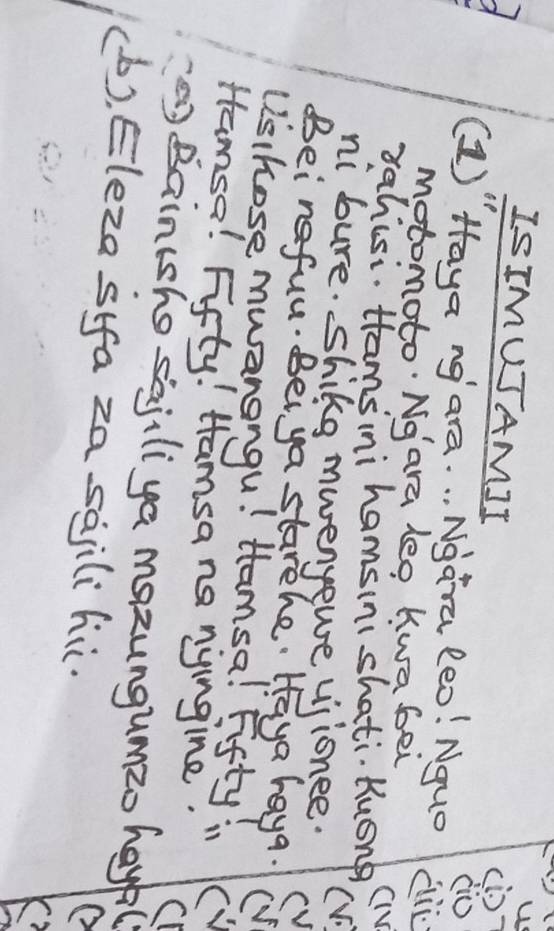 ISIMUJAMII
(1) "Haya ng'ara... Ng'ara leo! Nguo
motomoto. Ng'ara leo kwa bei
rahisi. Hamsini hamsini shati. Kuona
ni bure. Shika mwenyewe ujionee.
Bei nafuu. Bei ya starehe. Haya haya.
Usikose mwanangu! Hamsa! Fifty!
Hamsa! Fifty! Hamsa na nyingine."
(a) Bainisha sajili ya mazungumzo haya
(b). Eleza sifa za sajili hii.
(i)
(ii)
(iii)
(iv)